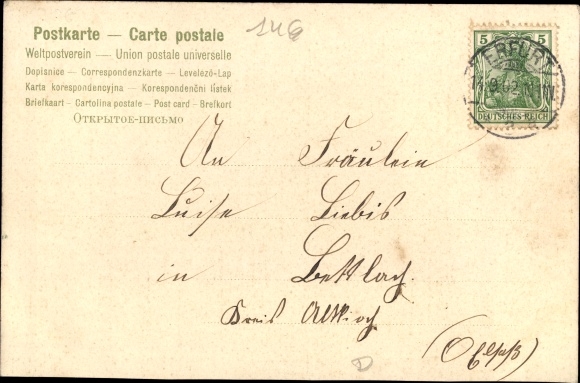 Postkarte — Carte postale
Weltpostverein — Union postale universelle
Dopisnice — Correspondenzkarte — Levelező-Lap
Karta korespondencyjna — Korespondenční lístek
Briefkaart — Cartolina postale — Post card — Brefkort
Открытое-письмо
146
5 5
ERFURT
DEUTSCHES REICH
An Fräulein
Luise Liebis
in Bettlach.
Kreis Altkirch
(O/Elsaß)
D